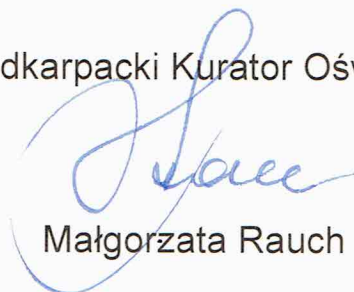 dkarpacki Kurator Ośw
Małgorzata Rauch